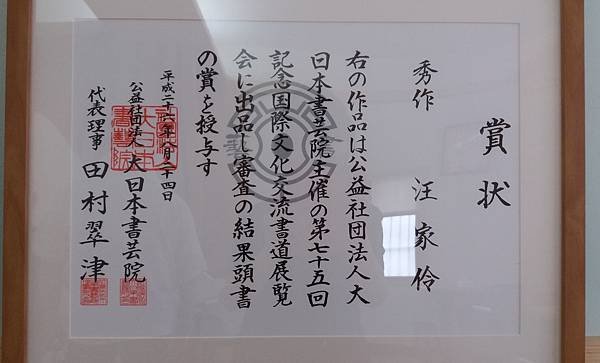 賞状
秀作 汪家伶
右の作品は公益社団法人大
日本書芸院主催の第七十五回
記念国際文化交流書道展覧
会に出品し審査の結果頭書
の賞を授与す
平成二十六年八月二十四日
公益社団法人 大日本書芸院
代表理事 田村翠津